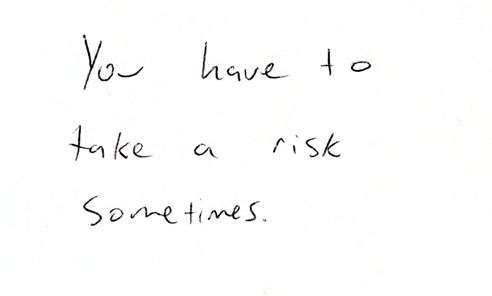 You have to
take a risk
Sometimes.